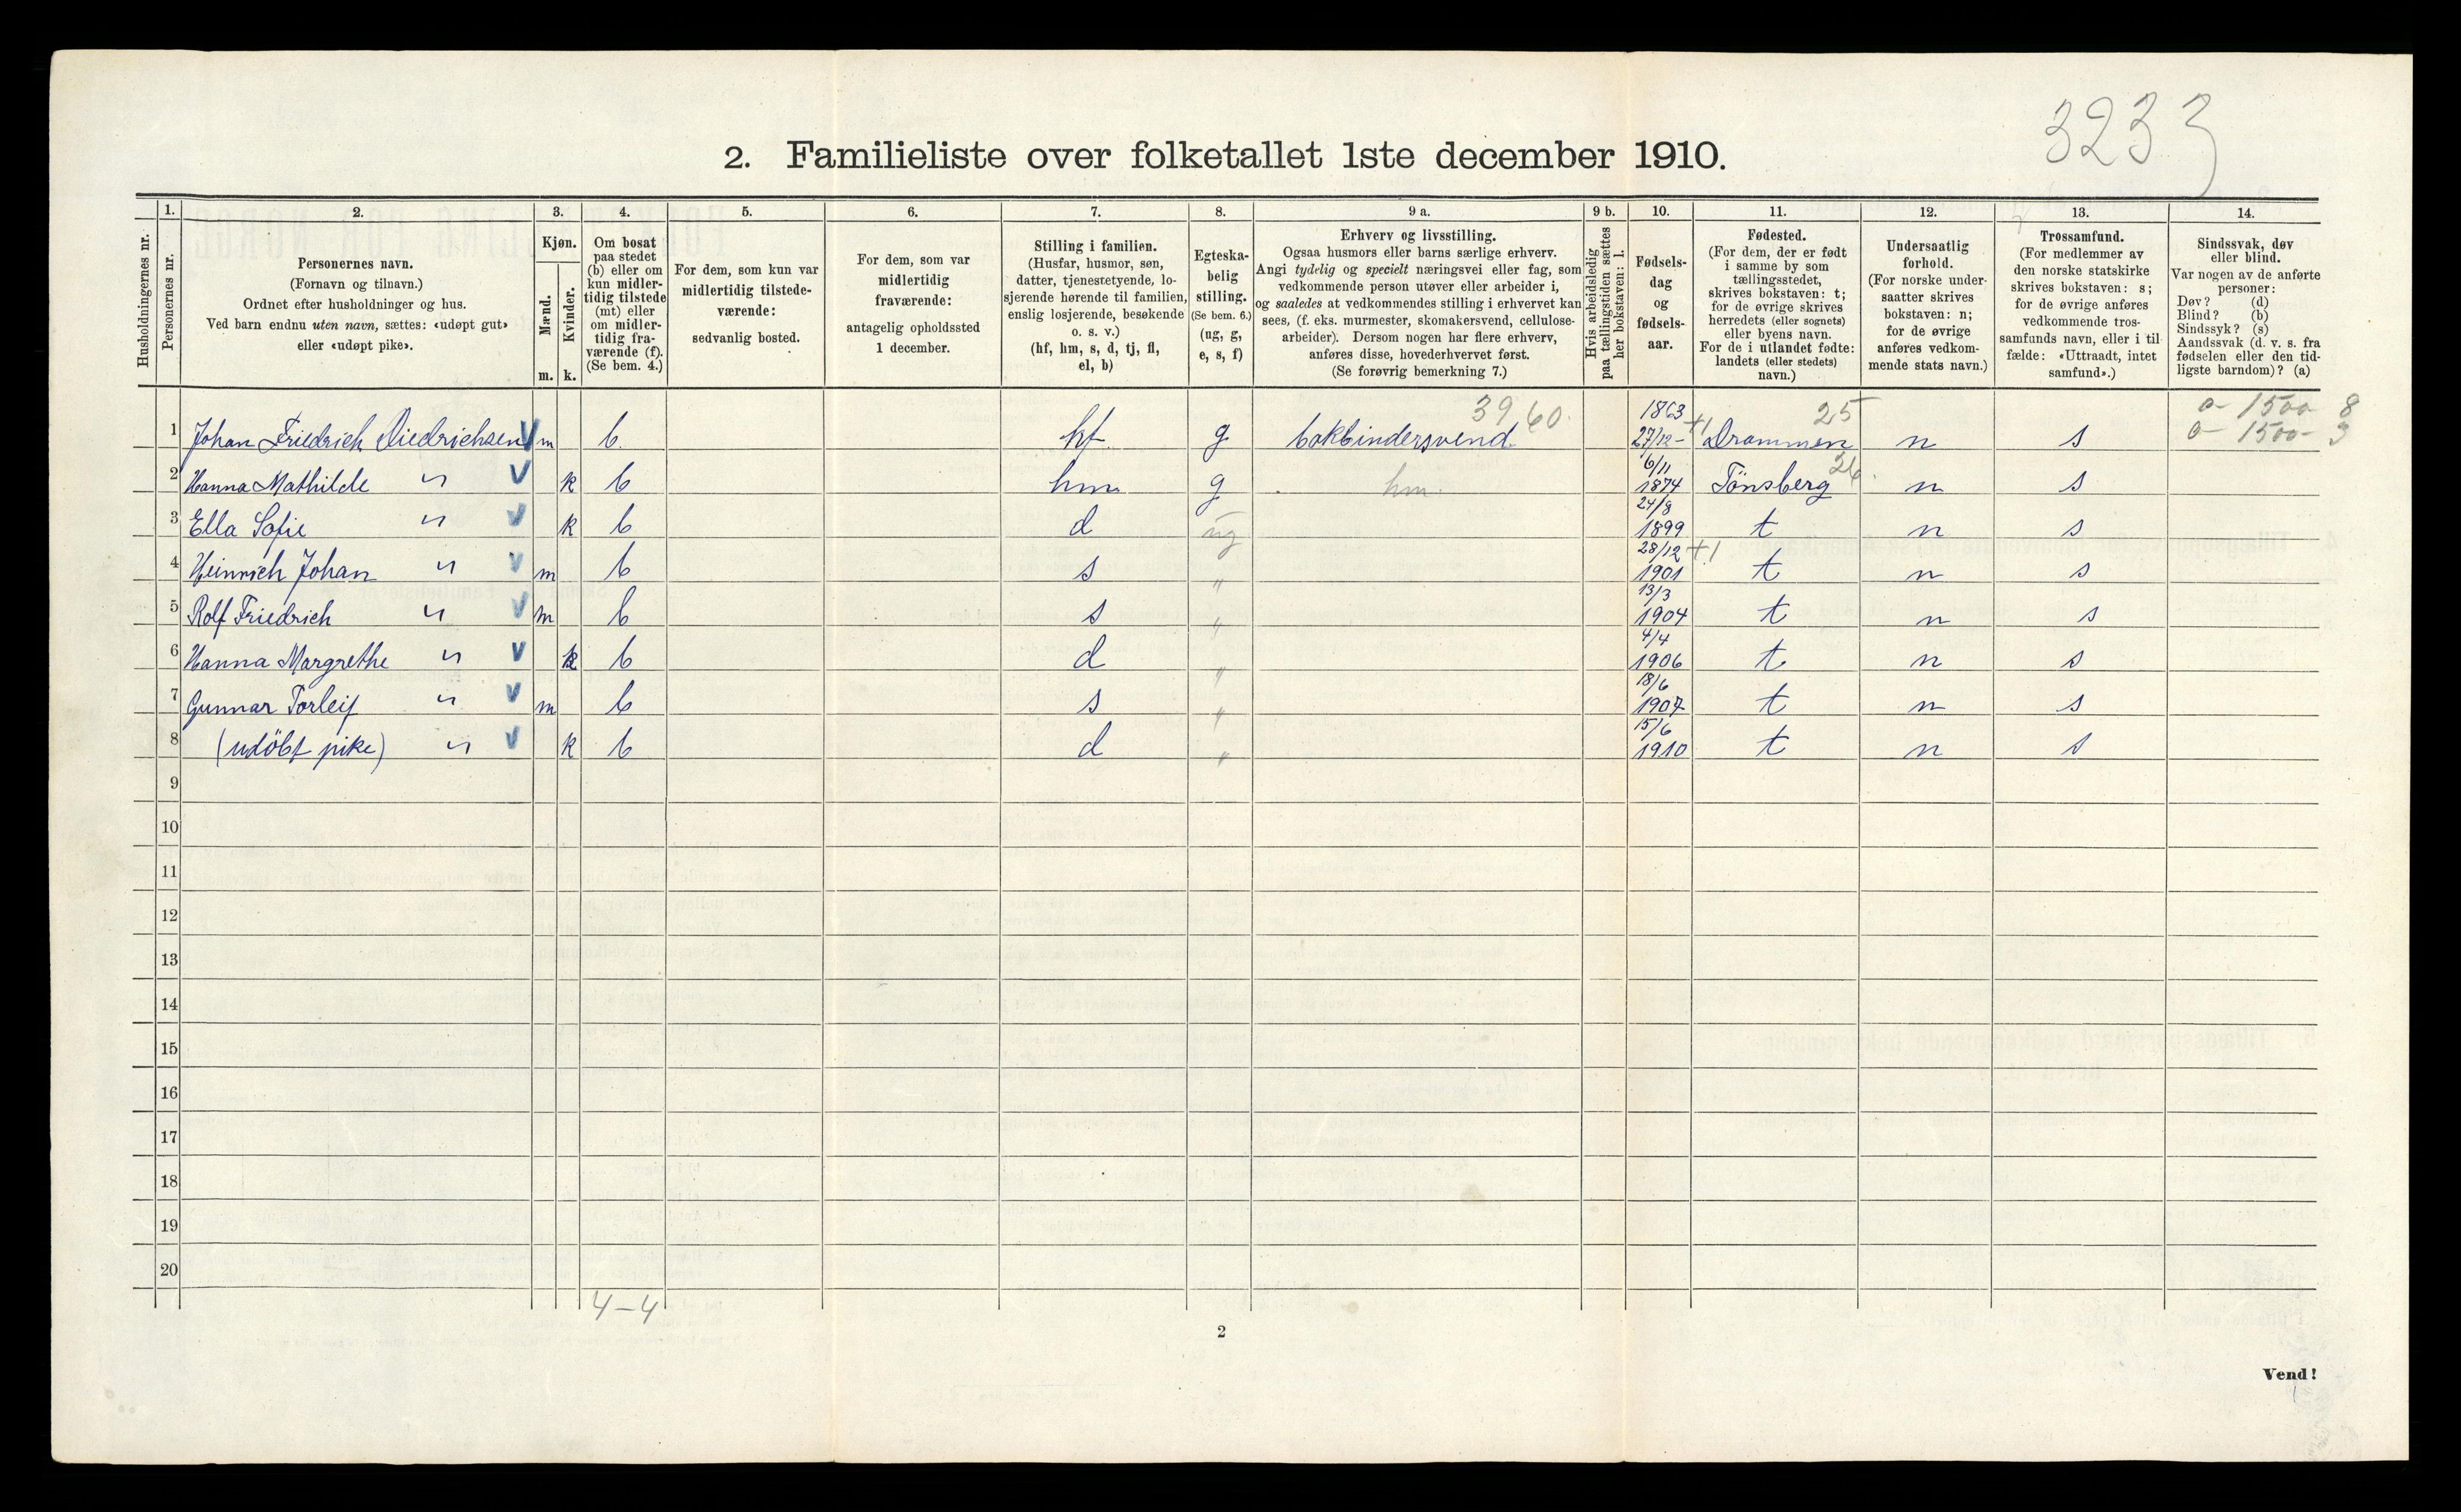 3233
2. Familieliste over folketallet 1ste december 1910.
Husholdningernes nr.
1.
Personernes nr.
2.
Personernes navn.
(Fornavn og tilnavn.)
Ordnet efter husholdninger og hus.
Ved barn endnu uten navn, sættes: «udøpt gut»
eller «udøpt pike».
3.
Kjøn.
Mænd.
Kvinder.
m. k.
4.
Om bosat
paa stedet
(b) eller om
kun midler-
tidig tilstede
(mt) eller
om midler-
tidig fra-
værende (f).
(Se bem. 4.)
5.
For dem, som kun var
midlertidig tilstede-
værende:
sedvanlig bosted.
6.
For dem, som var
midlertidig
fraværende:
antagelig opholdssted
1 december.
7.
Stilling i familien.
(Husfar, husmor, søn,
datter, tjenestetyende, lo-
sjerende hørende til familien,
enslig losjerende, besøkende
o. s. v.)
(hf, hm, s, d, tj, fl,
el, b)
8.
Egteska-
belig
stilling.
(Se bem. 6.)
(ug, g,
e, s, f)
9 a.
Erhverv og livsstilling.
Ogsaa husmors eller barns særlige erhverv.
Angi tydelig og specielt næringsvei eller fag, som
vedkommende person utøver eller arbeider i,
og saaledes at vedkommendes stilling i erhvervet kan
sees, (f. eks. murmester, skomakersvend, cellulose-
arbeider). Dersom nogen har flere erhverv,
anføres disse, hovederhvervet først.
(Se forøvrig bemerkning 7.)
9 b.
Hvis arbeidsledig
paa tællingstiden sættes
her bokstaven: l.
10.
Fødsels-
dag
og
fødsels-
aar.
11.
Fødested.
(For dem, der er født
i samme by som
tællingsstedet,
skrives bokstaven: t;
for de øvrige skrives
herredets (eller sognets)
eller byens navn.
For de i utlandet fødte:
landets (eller stedets)
navn.)
12.
Undersaatlig
forhold.
(For norske under-
saatter skrives
bokstaven: n;
for de øvrige
anføres vedkom-
mende stats navn.)
13.
Trossamfund.
(For medlemmer av
den norske statskirke
skrives bokstaven: s;
for de øvrige anføres
vedkommende tros-
samfunds navn, eller i til-
fælde: «Uttraadt, intet
samfund».)
14.
Sindssvak, døv
eller blind.
Var nogen av de anførte
personer:
Døv? (d)
Blind? (b)
Sindssyk? (s)
Aandssvak (d. v. s. fra
fødselen eller den tid-
ligste barndom)? (a)
39,60. 1863 25 o- 1500- 8
1 Johan Friedrich Diedrichsen V m b. hf g bokbindersvend 27/12- +1 Drammen n s o- 1500- 3
6/11 26
2 Hanna Mathilde " V k b hm g hm. 1874 Tönsberg n s
24/8
3 Ella Sofie " V k b d ug 1899 t n s
28/12 +1
4 Heinrich Johan " V m b s " 1901 t n s
13/3
5 Rolf Friedrich " V m b s " 1904 t n s
4/4
6 Hanna Margrethe " V k b d " 1906 t n s
18/6
7 Gunnar Torleif " V m b s " 1907 t n s
15/6
8 (udöbt pike) " V k b d " 1910 t n s
9
10
11
12
13
14
15
16
17
18
19
20
4-4
2
Vend!